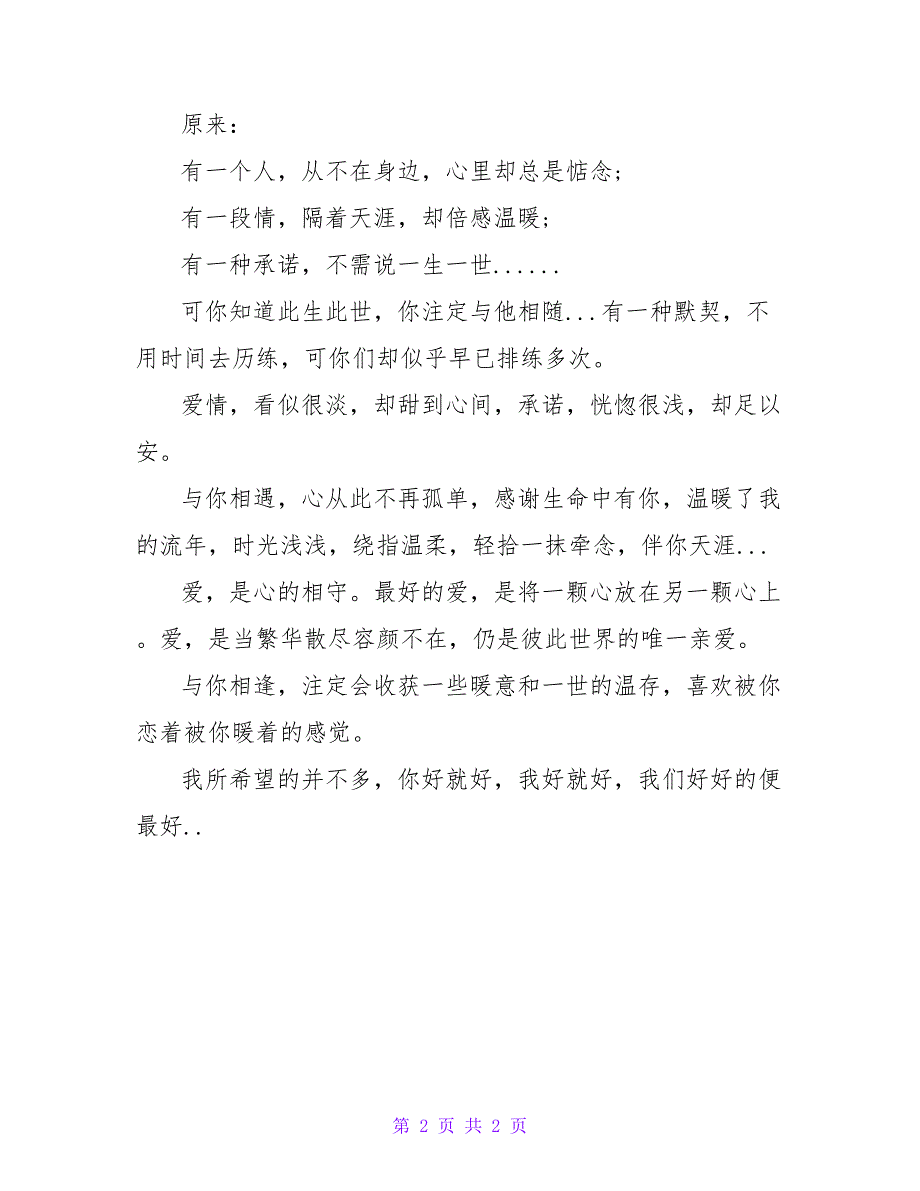 原来：
有一个人，从不在身边，心里却总是惦念;
有一段情，隔着天涯，却倍感温暖;
有一种承诺，不需说一生一世......
可你知道此生此世，你注定与他相随...有一种默契，不
用时间去历练，可你们却似乎早已排练多次。
爱情，看似很淡，却甜到心间，承诺，恍惚很浅，却足以
安。
与你相遇，心从此不再孤单，感谢生命中有你，温暖了我
的流年，时光浅浅，绕指温柔，轻拾一抹牵念，伴你天涯...
爱，是心的相守。最好的爱，是将一颗心放在另一颗心上
。爱，是当繁华散尽容颜不在，仍是彼此世界的唯一亲爱。
与你相逢，注定会收获一些暖意和一世的温存，喜欢被你
恋着被你暖着的感觉。
我所希望的并不多，你好就好，我好就好，我们好好的便
最好..
第 2 页 共 2 页